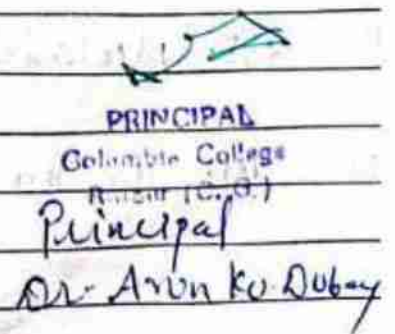 PRINCIPAL
Columbia College
(C.G.)
Principal
Dr. Arun Ku. Dubey